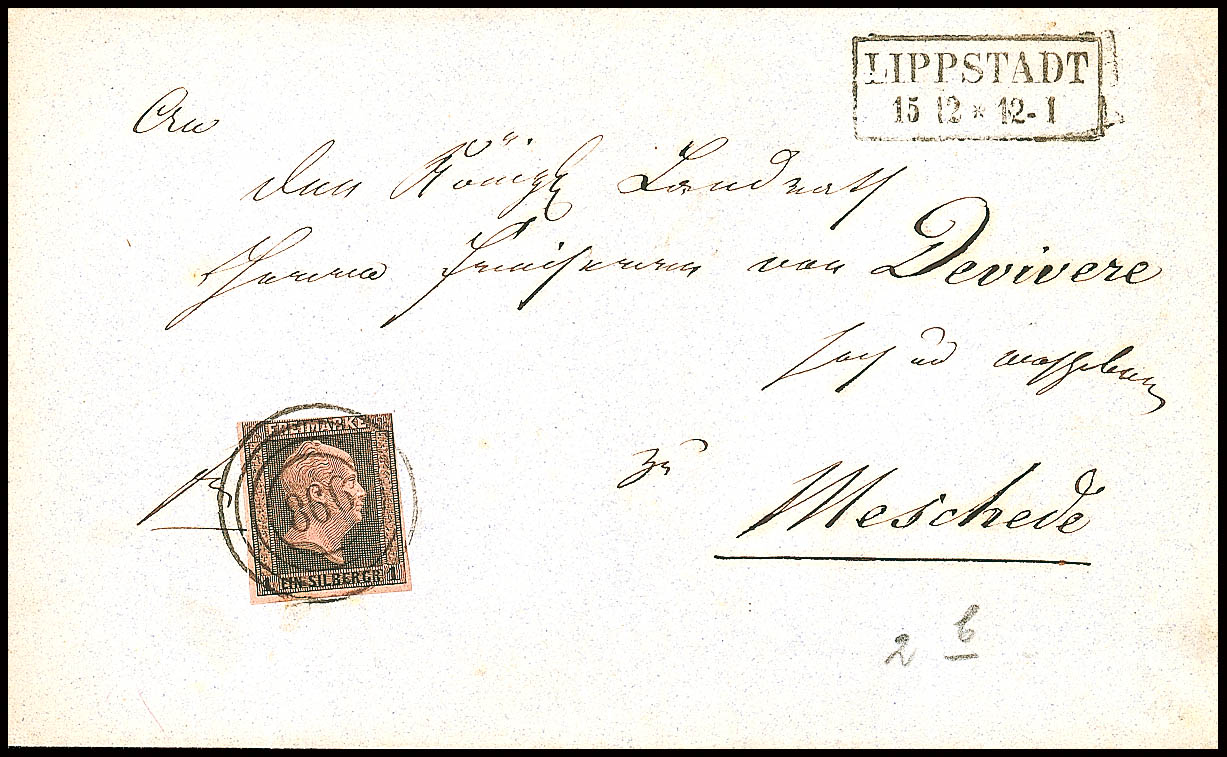 LIPPSTADT
15 12 * 12-1
An
den Königl Landrath
Herrn Freiherrn von Devivere
hoch und wohlgeboren
zu
Meschede
FREIMARKE
1 EIN SILBERGR. 1
2 b